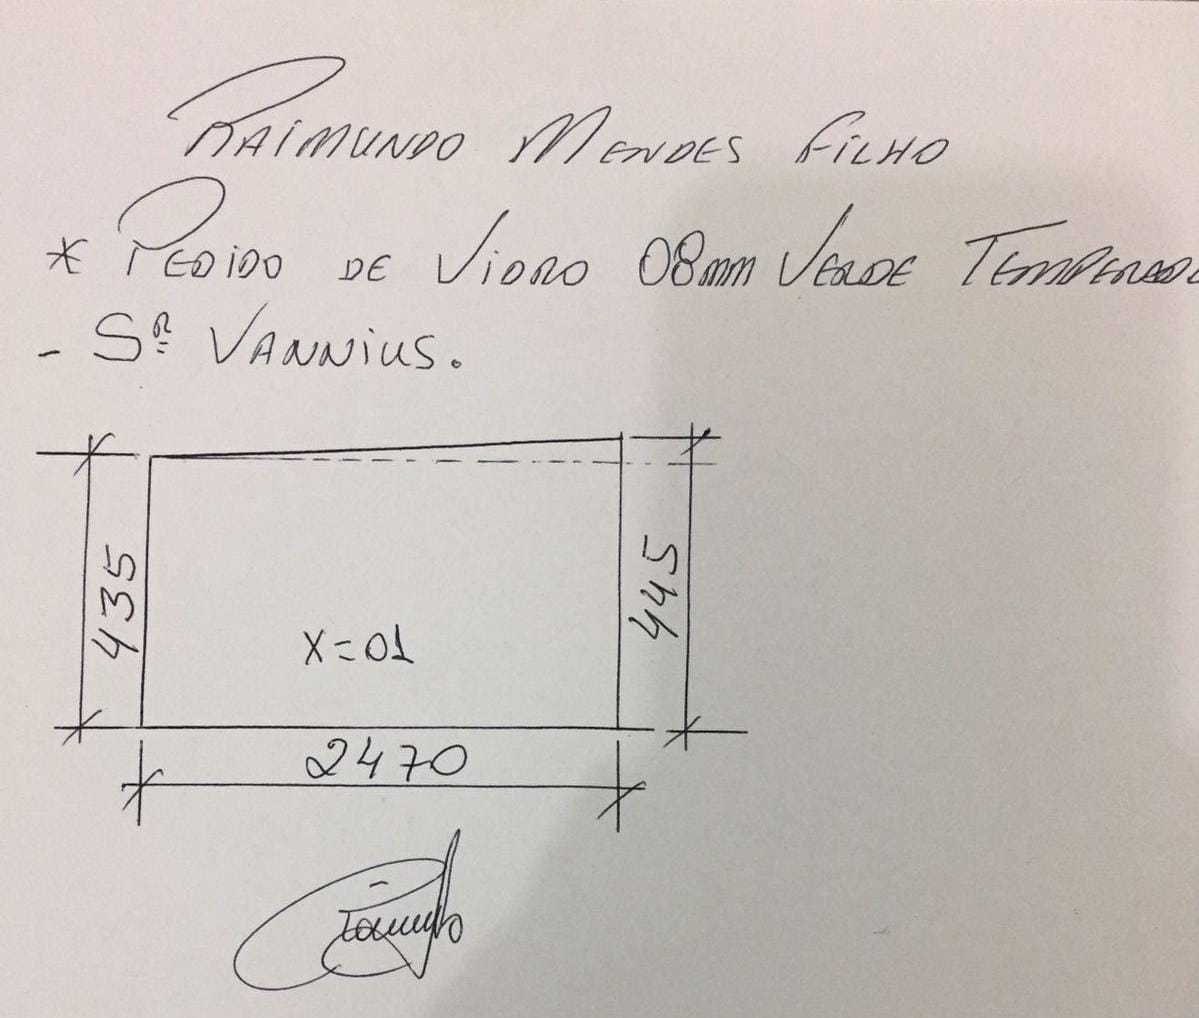 RAIMUNDO MENDES FILHO
* PEDIDO DE VIDRO 08mm VERDE TEMPERADO
- Sʳ VANNIUS.
435
445
X=01
2470